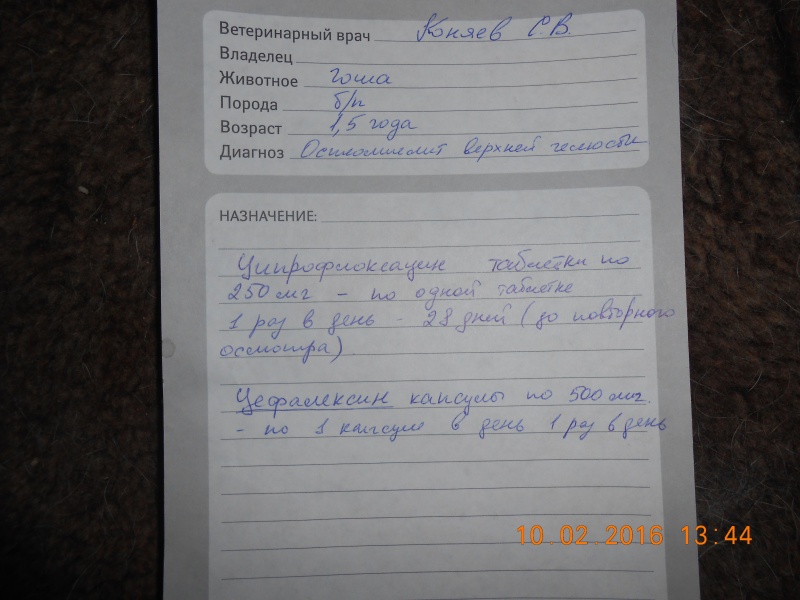 Ветеринарный врач Коняев С.В.
Владелец
Животное Гоша
Порода б/п
Возраст 1,5 года
Диагноз Остеомиелит верхней челюсти
НАЗНАЧЕНИЕ:
Ципрофлоксацин таблетки по
250 мг - по одной таблетке
1 раз в день - 28 дней (до повторного
осмотра).
Цефалексин капсулы по 500 мг.
- по 1 капсуле в день 1 раз в день
10.02.2016 13:44